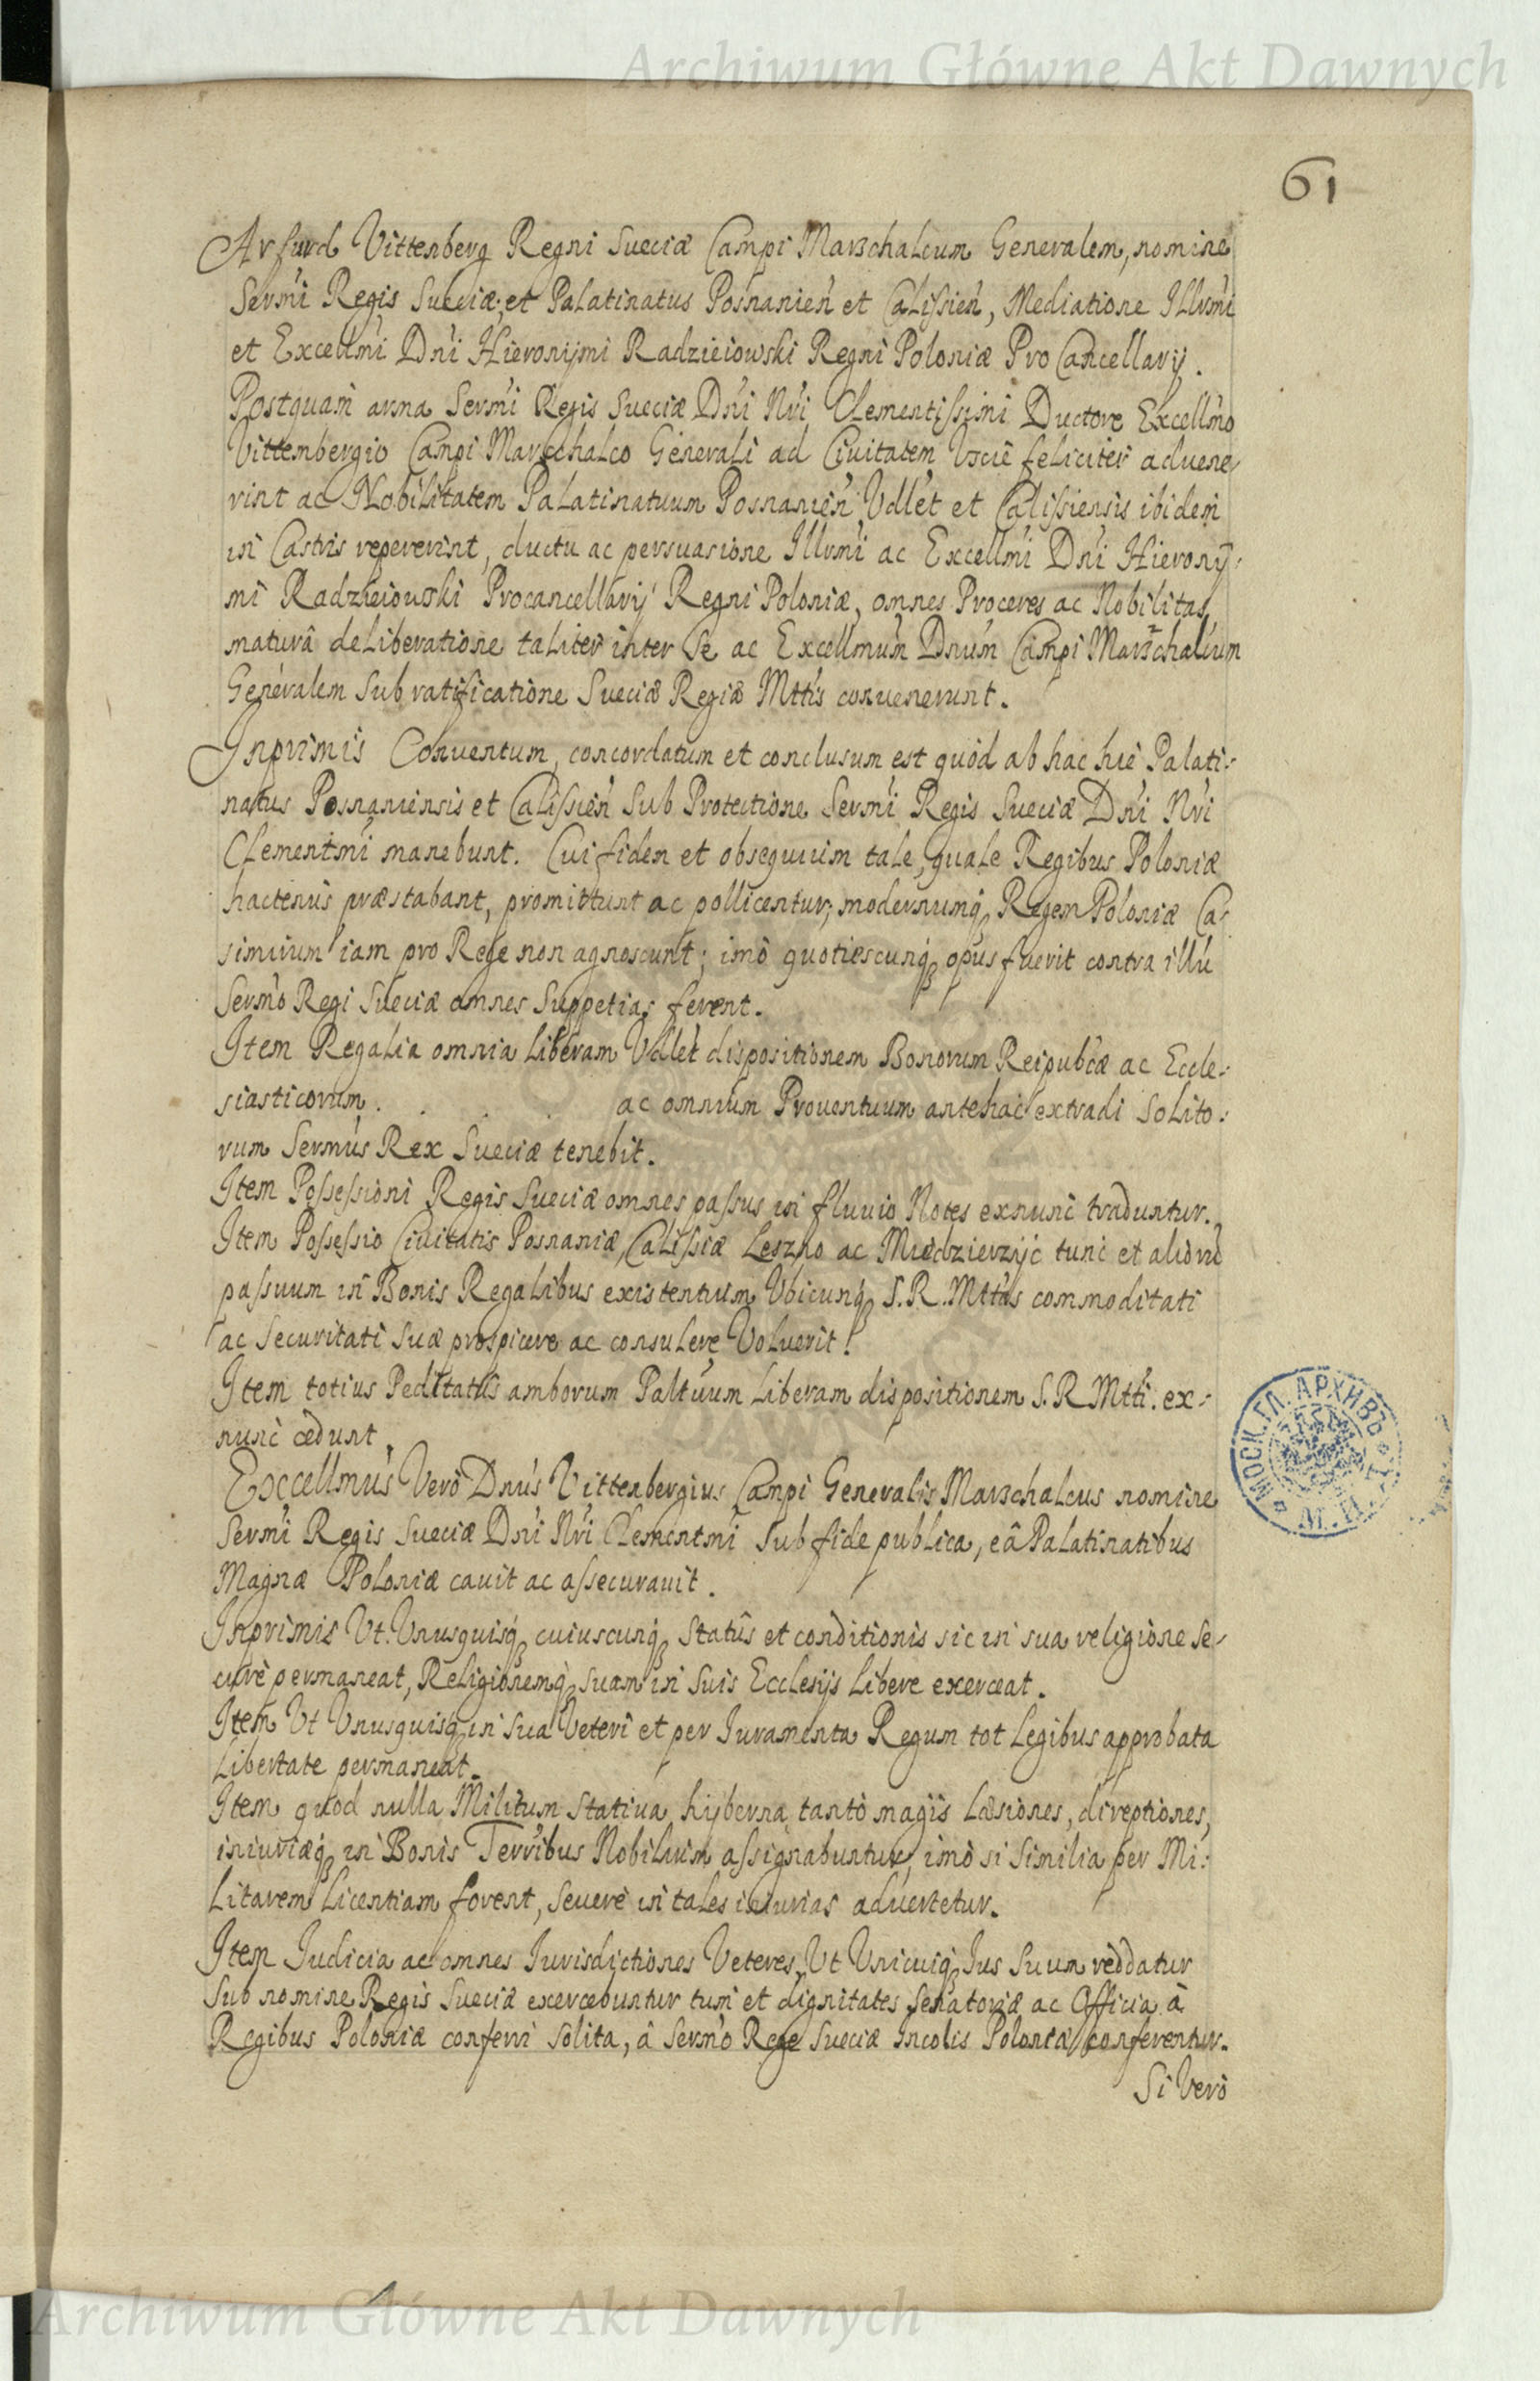 Archiwum Główne Akt Dawnych
61
Arfurd Vittenberg Regni Sueciæ Campi Marschalcum Generalem, nomine
Sermi Regis Sueciæ; et Palatinatus Posnanień et Calissień, Mediatione Illrmi
et Excellmi Dni Hieronymi Radzieiowski Regni Poloniæ Pro Cancellarij.
Postquam arma Sermi Regis Sueciæ Dni Nri Clementissimi Ductore Excellmo
Vittenbergio Campi Marschalco Generali ad Ciuitatem Vscie feliciter aduene-
rint ac Nobilitatem Palatinatuum Posnanień Vdlet et Calissiensis ibidem
in Castris repererint, ductu ac persuasione Illrmi ac Excellmi Dni Hierony-
mi Radzieiouski Procancellarij Regni Poloniæ, omnes Proceres ac Nobilitas
maturâ deliberatione taliter inter se ac Excellmum Dnum Campi Marschalcum
Generalem sub ratificatione Sueciæ Regiæ Mttis conuenerunt.
Inprimis Conuentum, concordatum et conclusum est quòd ab hac hie Palati-
natus Posnaniensis et Calissień sub Protectione Sermi Regis Sueciæ Dni Nri
Clementmi manebunt. Cui fidem et obsequium tale, quale Regibus Poloniæ
hactenus præstabant, promittunt ac pollicentur; modernumq Regem Poloniæ Ca-
simirum iam pro Rege non agnoscunt; imò quotiescunq opus fuerit contra illū
Sermo Regi Sueciæ omnes suppetias ferent.
Item Regalia omnia liberam Vdlet dispositionem Bonorum Reipubcæ ac Eccle-
siasticorum . . . . ac omnium Prouentuum antehac extradi solito-
rum Sermus Rex Sueciæ tenebit.
Item Possessioni Regis Sueciæ omnes passus in fluuio Notes exnunc traduntur.
Item Possessio Ciuitatis Posnaniæ, Calissiæ Leszno ac Miedzierzyc tunc et aliorū
passuum in Bonis Regalibus existentium Vbicunq S.R.Mttas commoditati
ac securitati suæ prospicere ac consulere Voluerit.
Item totius Peditatus amborum Paltuum liberam dispositionem S.R Mtti. ex-
nunc cedunt.
Excellmus Verò Dnus Vittenbergius Campi Generalis Marschalcus nomine
Sermi Regis Sueciæ Dni Nri Clementmi sub fide publica, eâ Palatinatibus
Magnæ Poloniæ cauit ac assecurauit.
Inprimis Vt Vnusquisq cuiuscunq statûs et conditionis sic in sua religione se-
curè permaneat, Religionemq suam in suis Ecclesijs libere exerceat.
Item Vt Vnusquisq in sua Veteri et per Iuramenta Regum tot legibus approbata
libertate permaneat.
Item quod nulla Militum statiua, hyberna, tantò magis læsiones, direptiones,
iniuriæq in Bonis Terribus Nobilium assignabuntur, imò si similia per Mi-
litarem licentiam forent, seuerè in tales iniurias aduertetur.
Item Iudicia ac omnes Iurisdictiones Veteres, Vt Vnicuiq Ius suum reddatur
sub nomine Regis Sueciæ exercebuntur tum et dignitates senatoriæ ac Officia à
Regibus Poloniæ conferri solita, â Sermo Rege Sueciæ Incolis Poloniæ conferentur.
Si Verò
МОСК. ГЛ. АРХИВЪ
Archiwum Główne Akt Dawnych